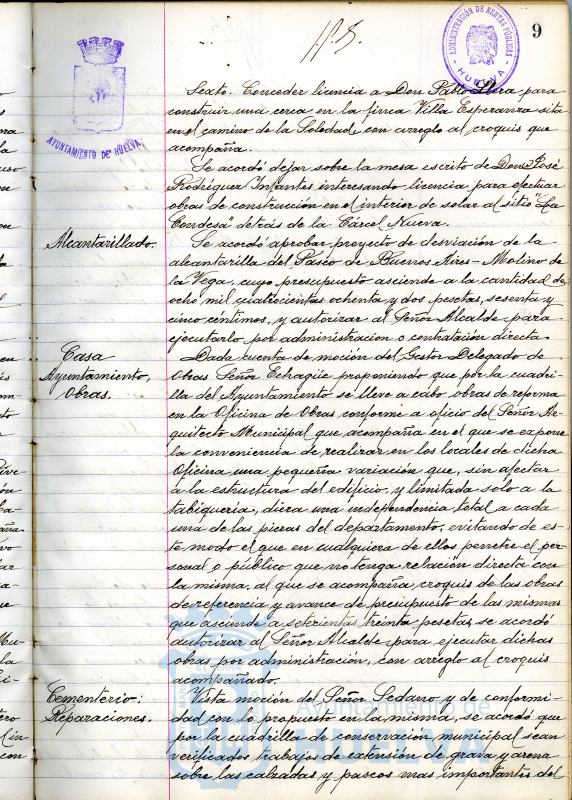 9
ADMINISTRACIÓN DE RENTAS PÚBLICAS
HUELVA
AYUNTAMIENTO DE HUELVA
Sexto. Conceder licencia a Don Pablo para
construir una cerca en la finca Villa Esperanza sita
en el camino de la Soledad, con arreglo al croquis que
acompaña.
Se acordó dejar sobre la mesa escrito de Don José
Rodriguez Infantes interesando licencia para efectuar
obras de construcción en el interior de solar al sitio "La
Condesa" detrás de la Cárcel Nueva.
Alcantarillado.
Se acordó aprobar proyecto de desviación de la
alcantarilla del Paseo de Buenos Aires-Molino de
la Vega, cuyo presupuesto asciende a la cantidad de
ocho mil cuatrocientas ochenta y dos pesetas, sesenta y
cinco céntimos, y autorizar al Señor Alcalde para
ejecutarlo por administración o contratación directa.
Casa
Ayuntamiento,
Obras.
Dada cuenta de moción del Gestor Delegado de
Obras Señor Echagüe proponiendo que por la cuadri-
lla del Ayuntamiento se lleve a cabo obras de reforma
en la Oficina de Obras conforme a oficio del Señor Ar-
quitecto Municipal que acompaña en el que se expone
la conveniencia de realizar en los locales de dicha
Oficina una pequeña variación que, sin afectar
a la estructura del edificio, y limitada solo a la
tabiquería, diera una independencia total a cada
una de las piezas del departamento, evitando de es-
te modo el que en cualquiera de ellos penetre el per-
sonal o público que no tenga relación directa con
la misma, al que se acompaña, croquis de las obras
de referencia y avance de presupuesto de las mismas
que asciende a setecientas treinta pesetas, se acordó
autorizar al Señor Alcalde para ejecutar dichas
obras por administración, con arreglo al croquis
acompañado.
Cementerio:
Reparaciones.
Vista moción del Señor Sedano y de conformi-
dad con lo propuesto en la misma, se acordó que
por la cuadrilla de conservación municipal sean
verificados trabajos de extensión de grava y arena
sobre las calzadas y paseos mas importantes del
Ayuntamiento de
HUELVA